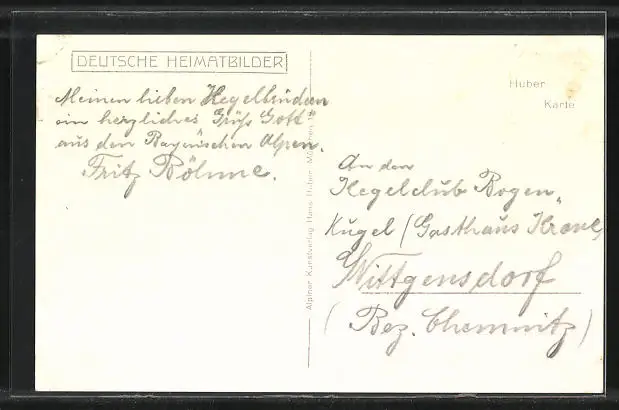 DEUTSCHE HEIMATBILDER
Meinen lieben Kegelbrüdern
ein herzliches "Grüß Gott"
aus den Bayerischen Alpen.
Fritz Böhme.
Alpiner Kunstverlag Hans Huber, München
Huber
Karte
An den
Kegelclub Bogen-
Kugel (Gasthaus Krone)
Wittgensdorf
(Bez. Chemnitz)